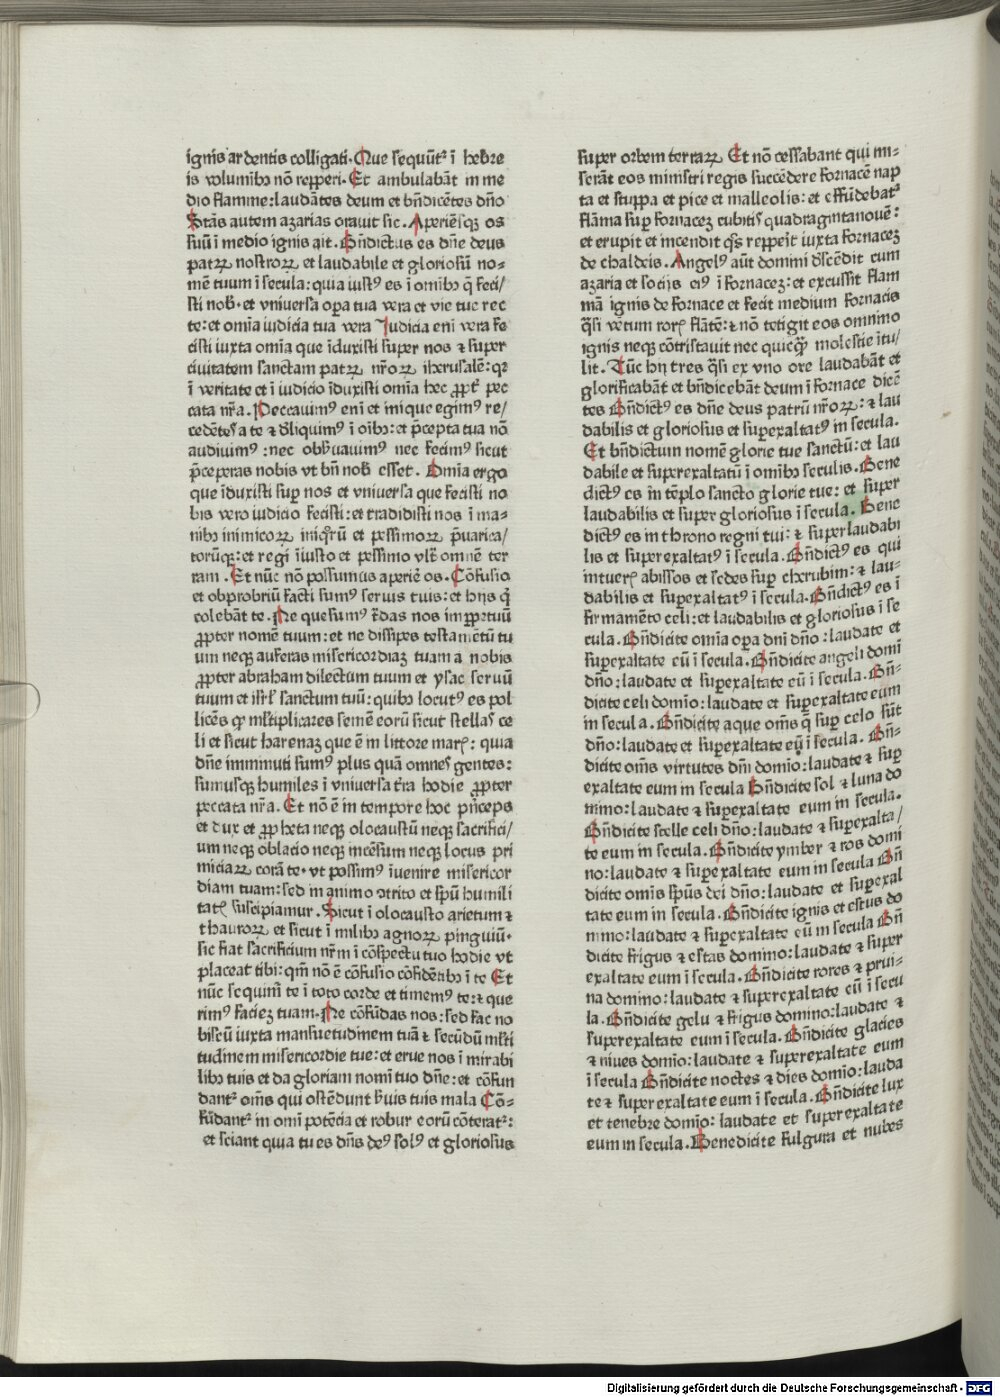 ignis ardentis colligati. Que sequūtᷣ ī hebre
is voluminibꝫ nō repperi. Et ambulabāt in me
dio flamme: laudātes deum et bn̄dicētes dn̄o
Stās autem azarias orauit sic. Aperiēsqꝫ os
suū ī medio ignis ait. Bn̄dictus es dn̄e deus
patrꝝ nostroꝝ et laudabile et gloriosū no-
mē tuum ī secula: quia iustꝰ es ī omībꝫ q̄ feci/
sti nob̄. et vniuersa oꝑa tua vera et vie tue rec
te: et omīa iudicia tua vera Iudicia enī vera fe
cisti iuxta omīa que īduxisti super nos ⁊ super
ciuitatem sanctam patrꝝ nr̄oꝝ iherusalē: qꝛ
ī veritate et ī iudicio īduxisti omīa hec ꝓpt̄ pec
cata nr̄a. Peccauimꝰ enī et inique egimꝰ re/
cedētes a te ⁊ dliquimꝰ ī oībꝫ: et p̄cepta tua nō
audiuimꝰ: nec obb̄uauimꝰ nec fecimꝰ sicut
p̄ceperas nobis vt bn̄ nob̄ esset. Omīa ergo
que īduxisti suꝑ nos et vniuersa que fecisti no
bis vero iudicio fecisti: et tradidisti nos ī ma-
nibꝫ inimicoꝝ iniqͦrū et pessimoꝝ p̄uarica/
torūqꝫ: et regi īiusto et pessimo vlt̄ omnē ter
ram. Et nūc nō possumus aperiē os. Cōfusio
et obprobriū facti sumꝰ seruis tuis: et hijs q̄
colebāt te. Ne quesumꝰ t̄das nos imꝑpetuū
ꝓpter nomē tuum: et ne dissipes testamētū tu
um neqꝫ auferas misericordiaꝫ tuam a nobis
ꝓpter abraham dilectum tuum et ysac seruū
tuum et isrl̄ sanctum tuū: quibꝫ locutꝰ es pol
licēs qꝙ ml̄tiplicares semē eorū sicut stellas ce
li et sicut harenaꝫ que ē in littore marꝭ: quia
dn̄e imminuti sumꝰ plus quā omnes gentes:
sumusqꝫ humiles ī vniuersa t̄ra hodie ꝓpter
peccata nr̄a. Et nō ē in tempore hoc p̄nceps
et dux et ꝓpheta neqꝫ olocaustū neqꝫ sacrifici/
um neqꝫ oblacio neqꝫ incēsum neqꝫ locus pri
miciaꝝ corā te. vt possimꝰ īuenire misericor
diam tuam: sed in animo ꝯtrito et sp̄u humili
tatꝭ suscipiamur. Sicut ī olocausto arietum ⁊
thauroꝝ et sicut ī milibꝫ agnoꝝ pinguiū.
sic fiat sacrificium nr̄m ī cōspectu tuo hodie vt
placeat tibi: qm̄ nō ē cōfusio cōfidētibꝫ ī te Et
nūc sequimᷣ te ī toto corde et timemꝰ te: ⁊ que
rimꝰ faciez tuam. Ne cōfūdas nos: sed fac no
biscū iuxta mansuetudinem tuā ⁊ secūdū ml̄ti
tudinem misericordie tue: et erue nos ī mirabi
libꝫ tuis et da gloriam nomī tuo dn̄e: et cōfun
dantᷣ om̄s qui ostēdunt s̄uis tuis mala Cō-
fūdantᷣ in omī potēcia et robur eorū cōteratᷣ:
et sciant quia tu es dn̄s deꝰ solꝰ et gloriosus
super orbem terraꝝ Et nō cessabant qui mi-
serāt eos ministri regis succēdere fornacē nap
ta et stuppa et pice et malleolis: et effūdebatᷣ
flāma suꝑ fornacez cubitis quadragintanouē:
et erupit et incendit qͦs repꝑit iuxta fornacez
de chaldeis. Angelꝰ aūt domini dscēdit cum
azaria et socijs eiꝰ ī fornacez: et excussit flam
mā ignis de fornace et fecit medium fornacis
q̄si vētum rorꝭ flātē: ⁊ nō tetigit eos omnino
ignis neqꝫ cōtristauit nec quicqꝙ molestie ītu/
lit. Tūc hij tres q̄si ex vno ore laudabāt et
glorificabāt et bn̄dicebāt deum ī fornace dicē
tes Bn̄dictꝰ es dn̄e deus patrū nr̄oꝝ: ⁊ lau
dabilis et gloriosus et suꝑexaltatꝰ in secula.
Et bn̄dictum nomē glorie tue sanctū: et lau
dabile et superexaltatū ī omībꝫ seculis. Bene
dictꝰ es in tēplo sancto glorie tue: et super
laudabilis et super gloriosus ī secula. Bene
dictꝰ es in throno regni tui: ⁊ superlaudabi
lis et superexaltatꝰ ī secula. Bn̄dictꝰ es qui
intuerꝭ abissos et sedes suꝑ cherubim: ⁊ lau-
dabilis et suꝑexaltatꝰ ī secula. Bn̄dictꝰ es ī
firmamēto celi: et laudabilis et gloriosus ī se
cula. Bn̄dicite omīa oꝑa dnī dn̄o: laudate et
suꝑexaltate eū ī secula. Bn̄dicite angeli domī
dn̄o: laudate et suꝑexaltate eū ī secula. Bn̄-
dicite celi domīo: laudate et suꝑexaltate eum
in secula. Bn̄dicite aque om̄s q̄ suꝑ celo sūt
dn̄o: laudate et suꝑexaltate eū ī secula. Bn̄-
dicite om̄s virtutes dn̄i domīo: laudate ⁊ suꝑ
exaltate eum in secula Bn̄dicite sol ⁊ luna do
mino: laudate ⁊ suꝑexaltate eum in secula.
Bn̄dicite stelle celi dn̄o: laudate ⁊ suꝑexalta/
te eum in secula. Bn̄dicite ymber ⁊ ros domi
no: laudate ⁊ suꝑexaltate eum in secula Bn̄
dicite omīs sp̄us dei dn̄o: laudate et suꝑexal
tate eum in secula. Bn̄dicite ignis et estus do
mino: laudate ⁊ suꝑexaltate eū in secula Bn̄
dicite frigus ⁊ estas domino: laudate ⁊ super
exaltate eum ī secula. Bn̄dicite rores ⁊ prui-
na domino: laudate ⁊ superexaltate eū ī secu
la. Bn̄dicite gelu ⁊ frigus domino: laudate ⁊
superexaltate eum ī secula. Bn̄dicite glacies
⁊ niues domīo: laudate ⁊ superexaltate eum
ī secula Bn̄dicite noctes ⁊ dies domīo: lauda
te ⁊ superexaltate eum ī secula. Bn̄dicite lux
et tenebre domīo: laudate et superexaltate
eum in secula. Benedicite fulgura et nubes
Digitalisierung gefördert durch die Deutsche Forschungsgemeinschaft - DFG